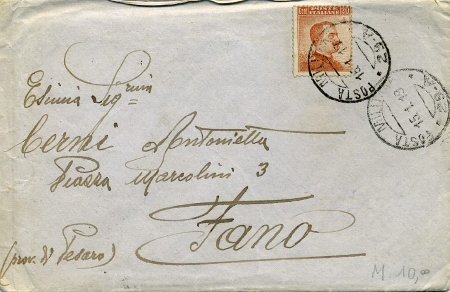 POSTE ITALIANE
29-A
POSTA MILIT
29-A
POSTA MILIT
15.1.19
Esimia Sigrina
Cerni Antonietta
Piazza Marcolini 3
Fano
(prov. di Pesaro)
M 10,00